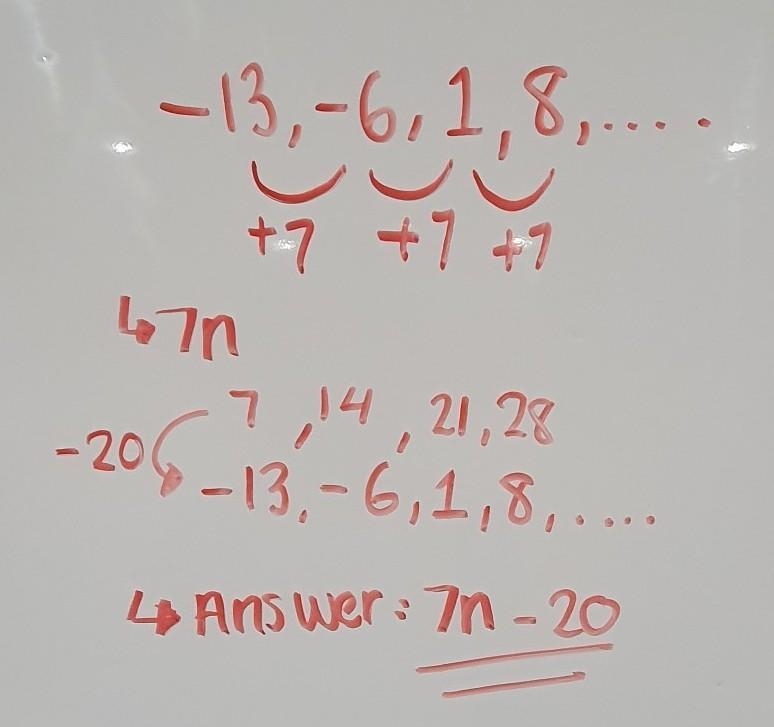 -13, -6, 1, 8, ....
+7 +7 +7
↳ 7n
7, 14, 21, 28
-20
-13, -6, 1, 8, ....
↳ Answer: 7n - 20